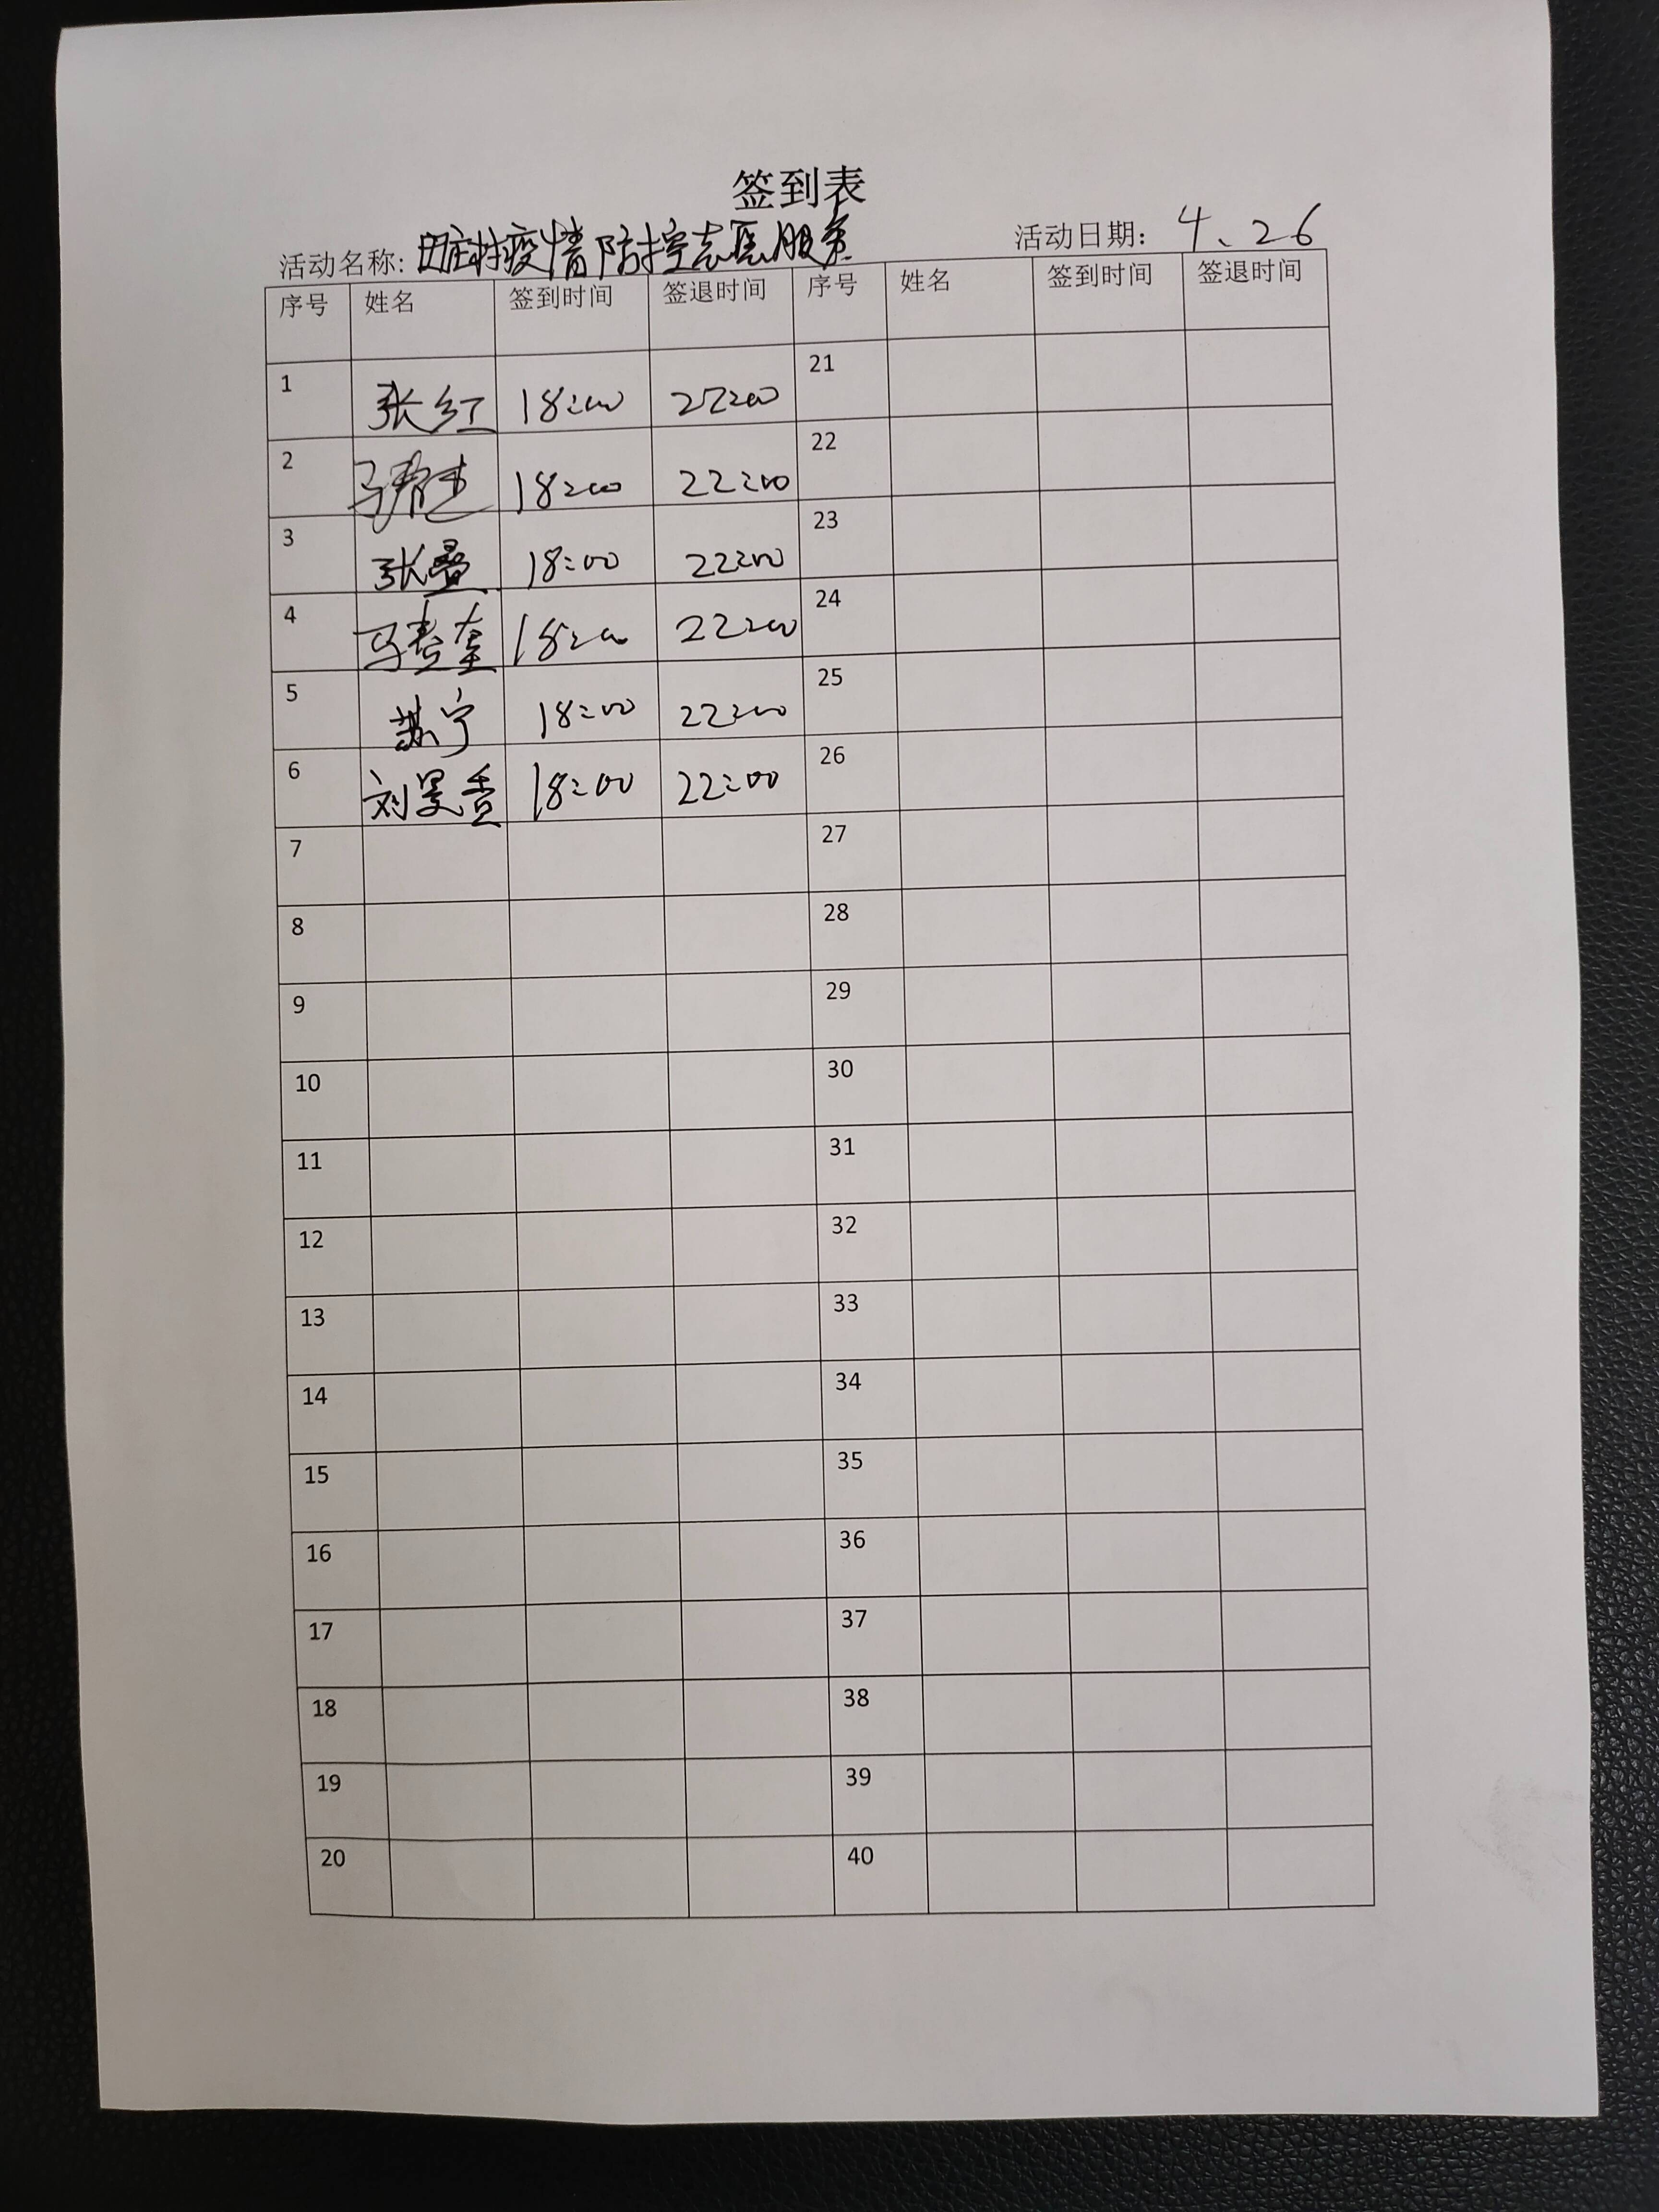 签到表
活动名称: 田庄村疫情防控志愿服务 活动日期: 4、26
序号 姓名 签到时间 签退时间 序号 姓名 签到时间 签退时间
1 张红 18:00 22:00 21
2 18:00 22:00 22
3 张叠 18:00 22:00 23
4 马春奎 18:00 22:00 24
5 苏宁 18:00 22:00 25
6 刘昊香 18:00 22:00 26
7 27
8 28
9 29
10 30
11 31
12 32
13 33
14 34
15 35
16 36
17 37
18 38
19 39
20 40